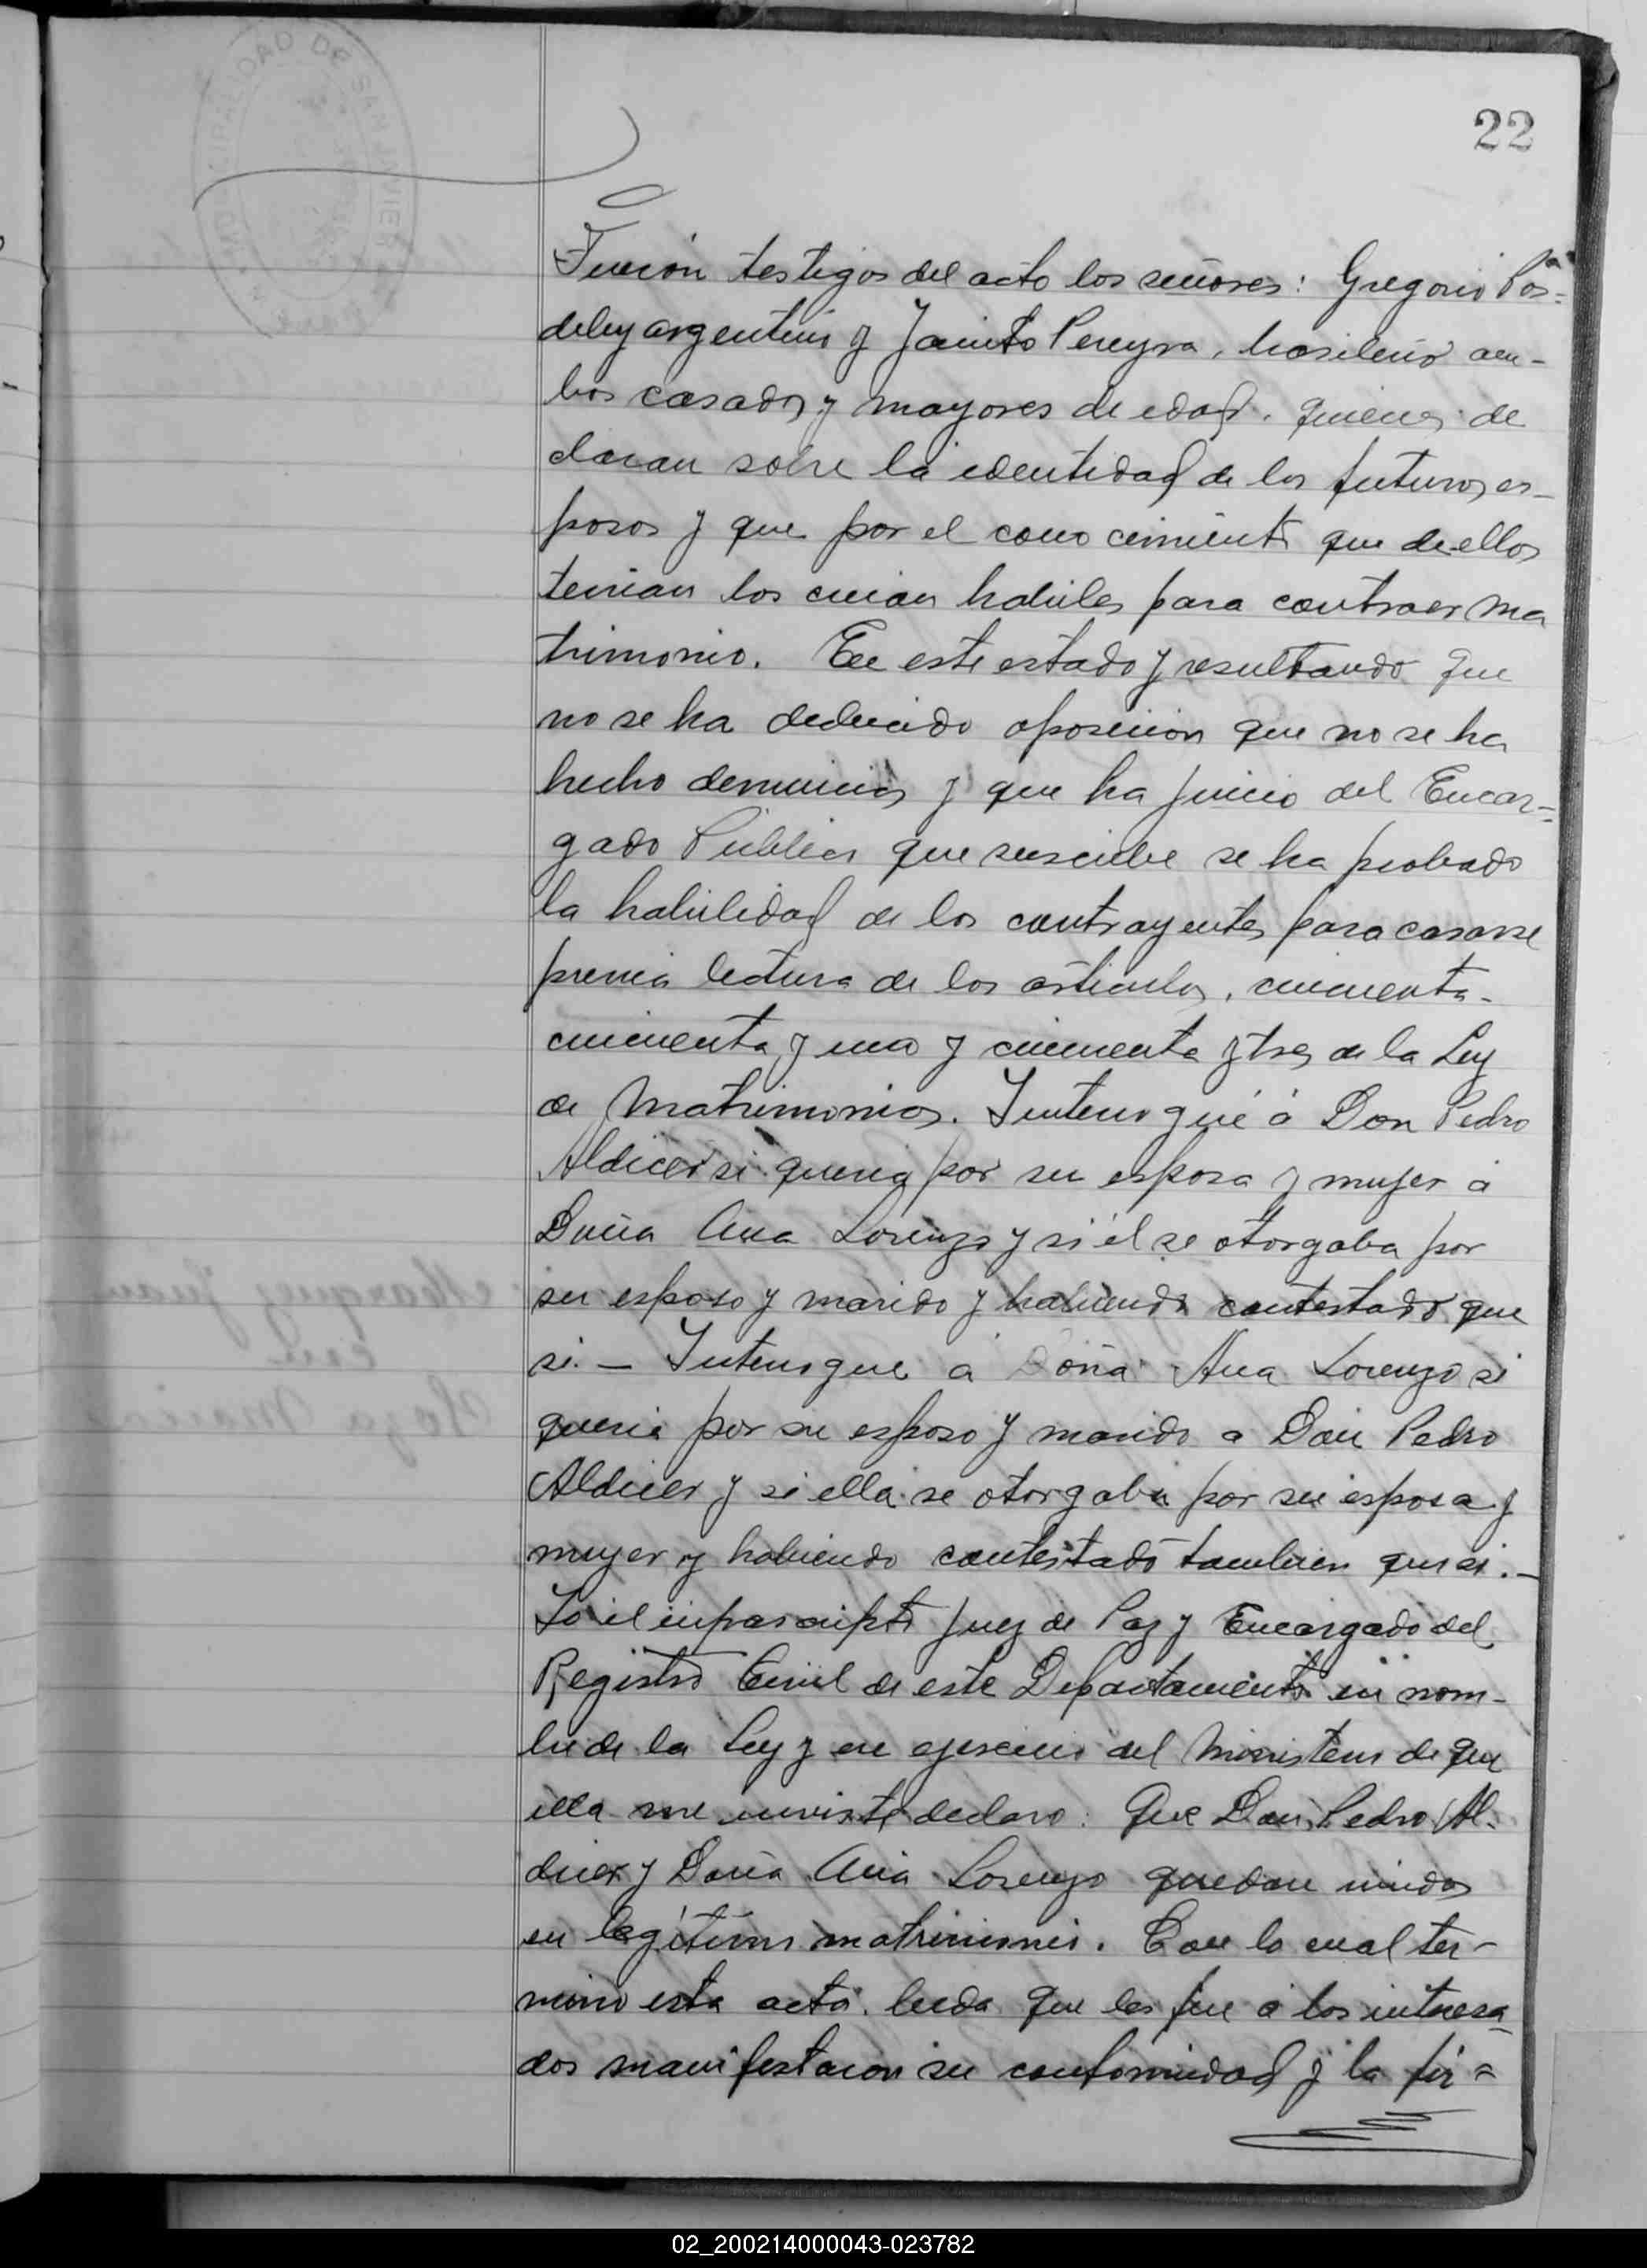 22
Fueron testigos del acto los señores: Gregorio Pos=
deley argentino y Jacinto Pereyra, brasileño am-
bos casados y mayores de edad. quienes de
claran sobre la identidad de los futuros es-
posos y que por el cono cimiento que de ellos
tenian los creian habiles para contraer ma
trimonio. En este estado y resultando que
no se ha deducido oposicion que no se ha
hecho denuncias y que ha juicio del Encar=
gado Publico que suscribe se ha probado
la habilidad de los contrayentes para casarse
previa lectura de los articulos, cincuenta-
cincuenta y uno y cincuenta y tres de la Ley
de Matrimonios. Interrogué á Don Pedro
Aldicer si queria por su esposa y mujer á
Doña Ana Lorenzo y si él se otorgaba por
su esposo y marido y habiendo contestado que
si. — Interrogue a Doña Ana Lorenzo si
queria por su esposo y marido a Don Pedro
Aldicer y si ella se otorgaba por su esposa y
mujer y habiendo contestado tambien que si.—
Yo el infrascripto Juez de Paz y Encargado del
Registro Civil de este Departamento en nom-
bre de la Ley y en ejercicio del Ministerio de que
ella me inviste declaro: Que Don Pedro Al-
dicer y Doña Ana Lorenzo quedan unidos
en legítimo matrimonio. Con lo cual ter-
mino esta acta. leida que les fue á los interesa
dos manifestaron su conformidad y la fir=
02_200214000043-023782